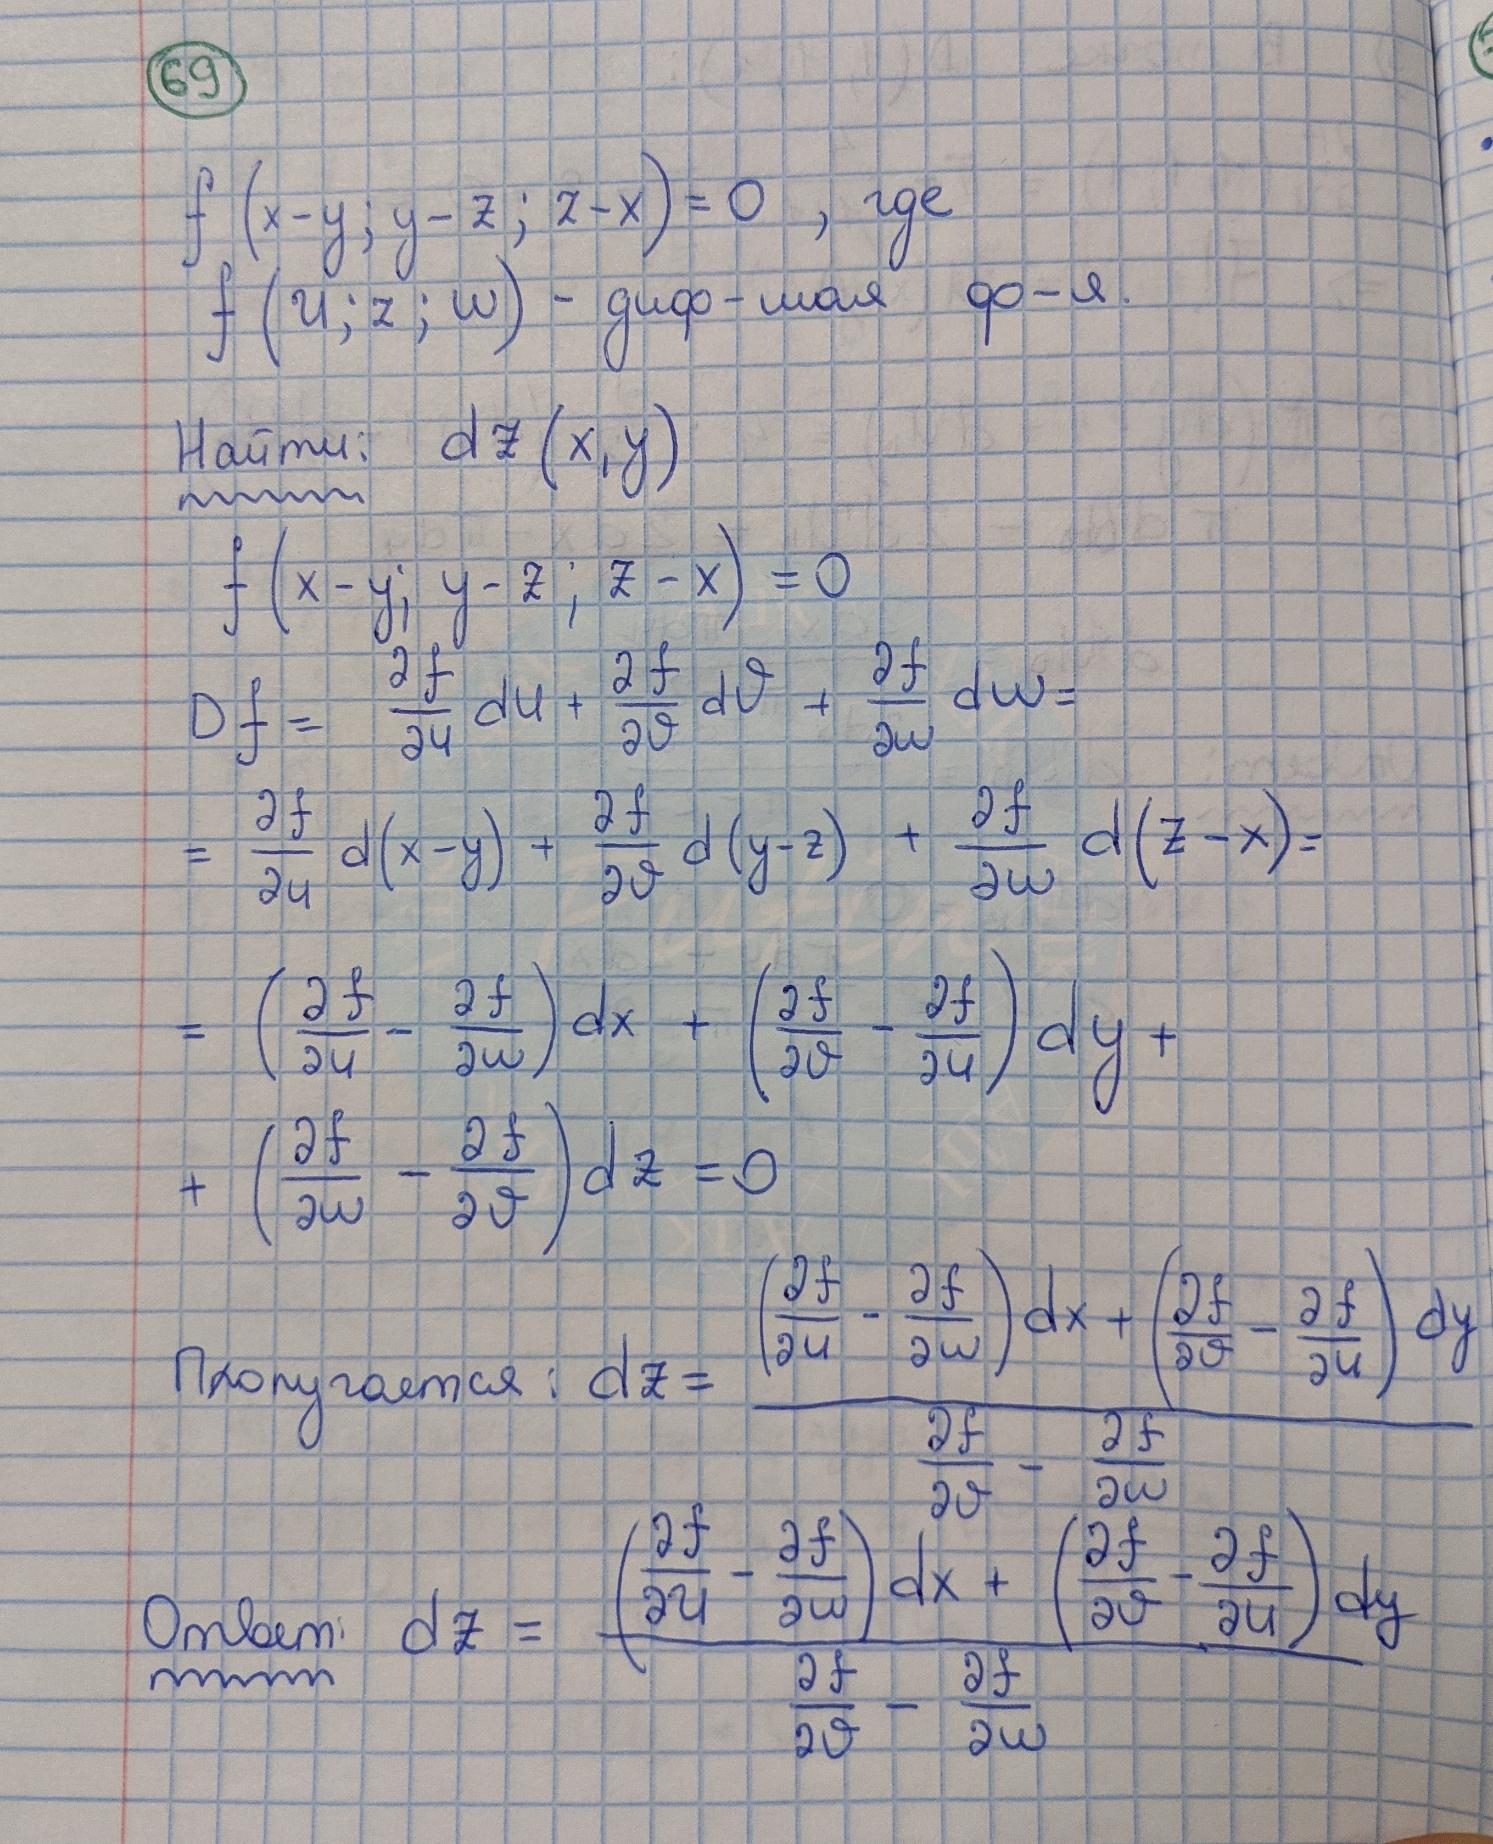 69
f (x-y; y-z; z-x) = 0, где
f (u; z; w) - диф-мая ф-я.
Найти: dz (x, y)
f (x-y; y-z; z-x) = 0
Df = ∂f/∂u du + ∂f/∂v dv + ∂f/∂w dw =
= ∂f/∂u d(x-y) + ∂f/∂v d(y-z) + ∂f/∂w d(z-x) =
= (∂f/∂u - ∂f/∂w) dx + (∂f/∂v - ∂f/∂u) dy +
+ (∂f/∂w - ∂f/∂v) dz = 0
dz = ((∂f/∂u - ∂f/∂w) dx + (∂f/∂v - ∂f/∂u) dy) / (∂f/∂v - ∂f/∂w)
Ответ: dz = ((∂f/∂u - ∂f/∂w) dx + (∂f/∂v - ∂f/∂u) dy) / (∂f/∂v - ∂f/∂w)